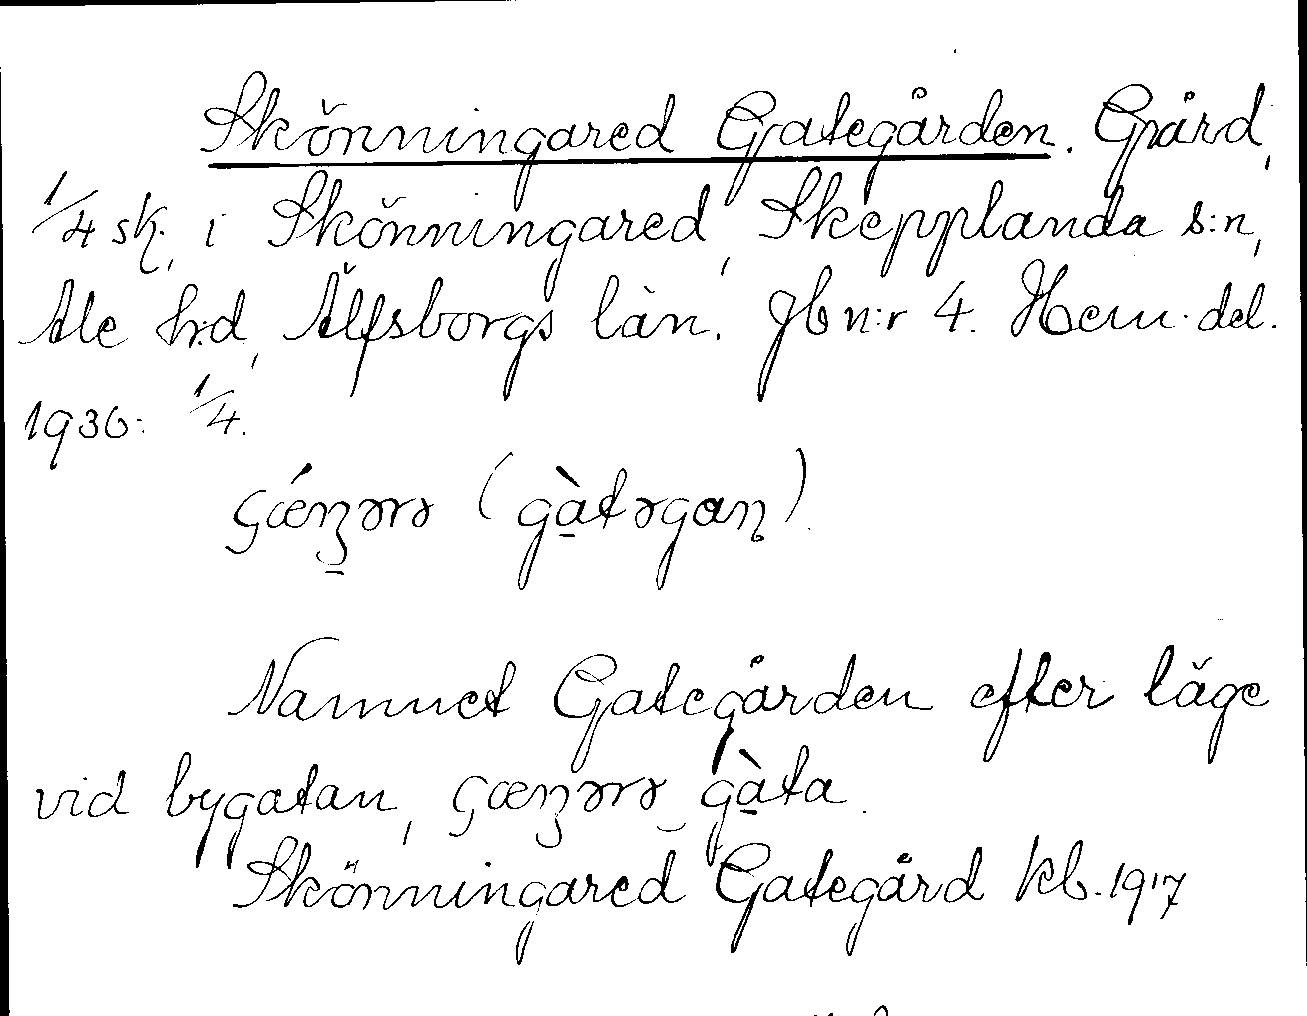 Skönningared Gategården. Gård,
1/4 sk., i Skönningared, Skepplanda s:n,
Ale h:d, Älfsborgs län. Jb n:r 4. Hem. del.
1936: 1/4.
(gàtəgaɳ).
Namnet Gategården efter läge
vid bygatan, gàta.
Skönningared Gategård kb. 1917